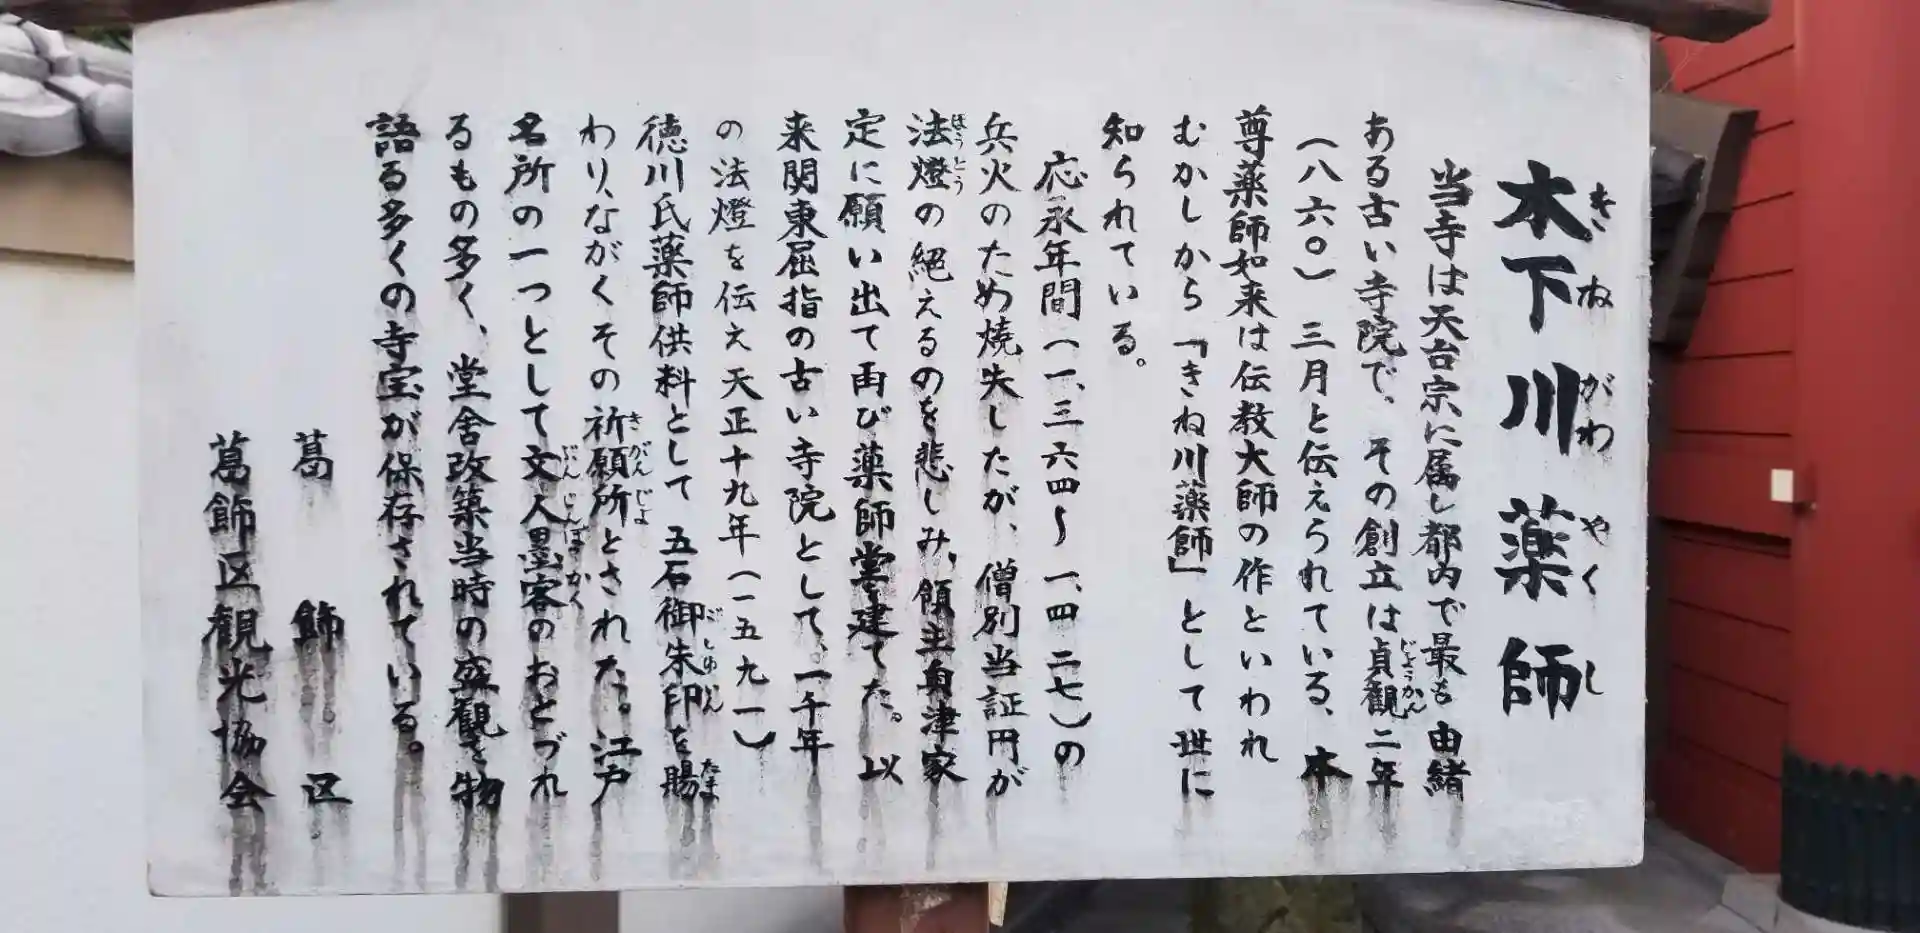 木下川薬師
きねがわやくし
当寺は天台宗に属し都内で最も由緒
ある古い寺院で、その創立は貞観二年
じょうかん
（八六〇）三月と伝えられている、本
尊薬師如来は伝教大師の作といわれ
むかしから「きね川薬師」として世に
知られている。
応永年間（一、三六四～一、四二七）の
兵火のため焼失したが、僧別当証円が
法燈の絶えるのを悲しみ、領主貞津家
ほうとう
定に願い出て再び薬師堂を建てた。以
来関東屈指の古い寺院として、一千年
の法燈を伝え天正十九年（一五九一）
徳川氏薬師供料として五石御朱印を賜
ごしゅいん
たま
わり、ながくその祈願所とされた。江戸
きがんじょ
名所の一つとして文人墨客のおとづれ
ぶんじんぼっかく
るもの多く、堂舎改築当時の盛観を物
語る多くの寺宝が保存されている。
葛飾区
葛飾区観光協会